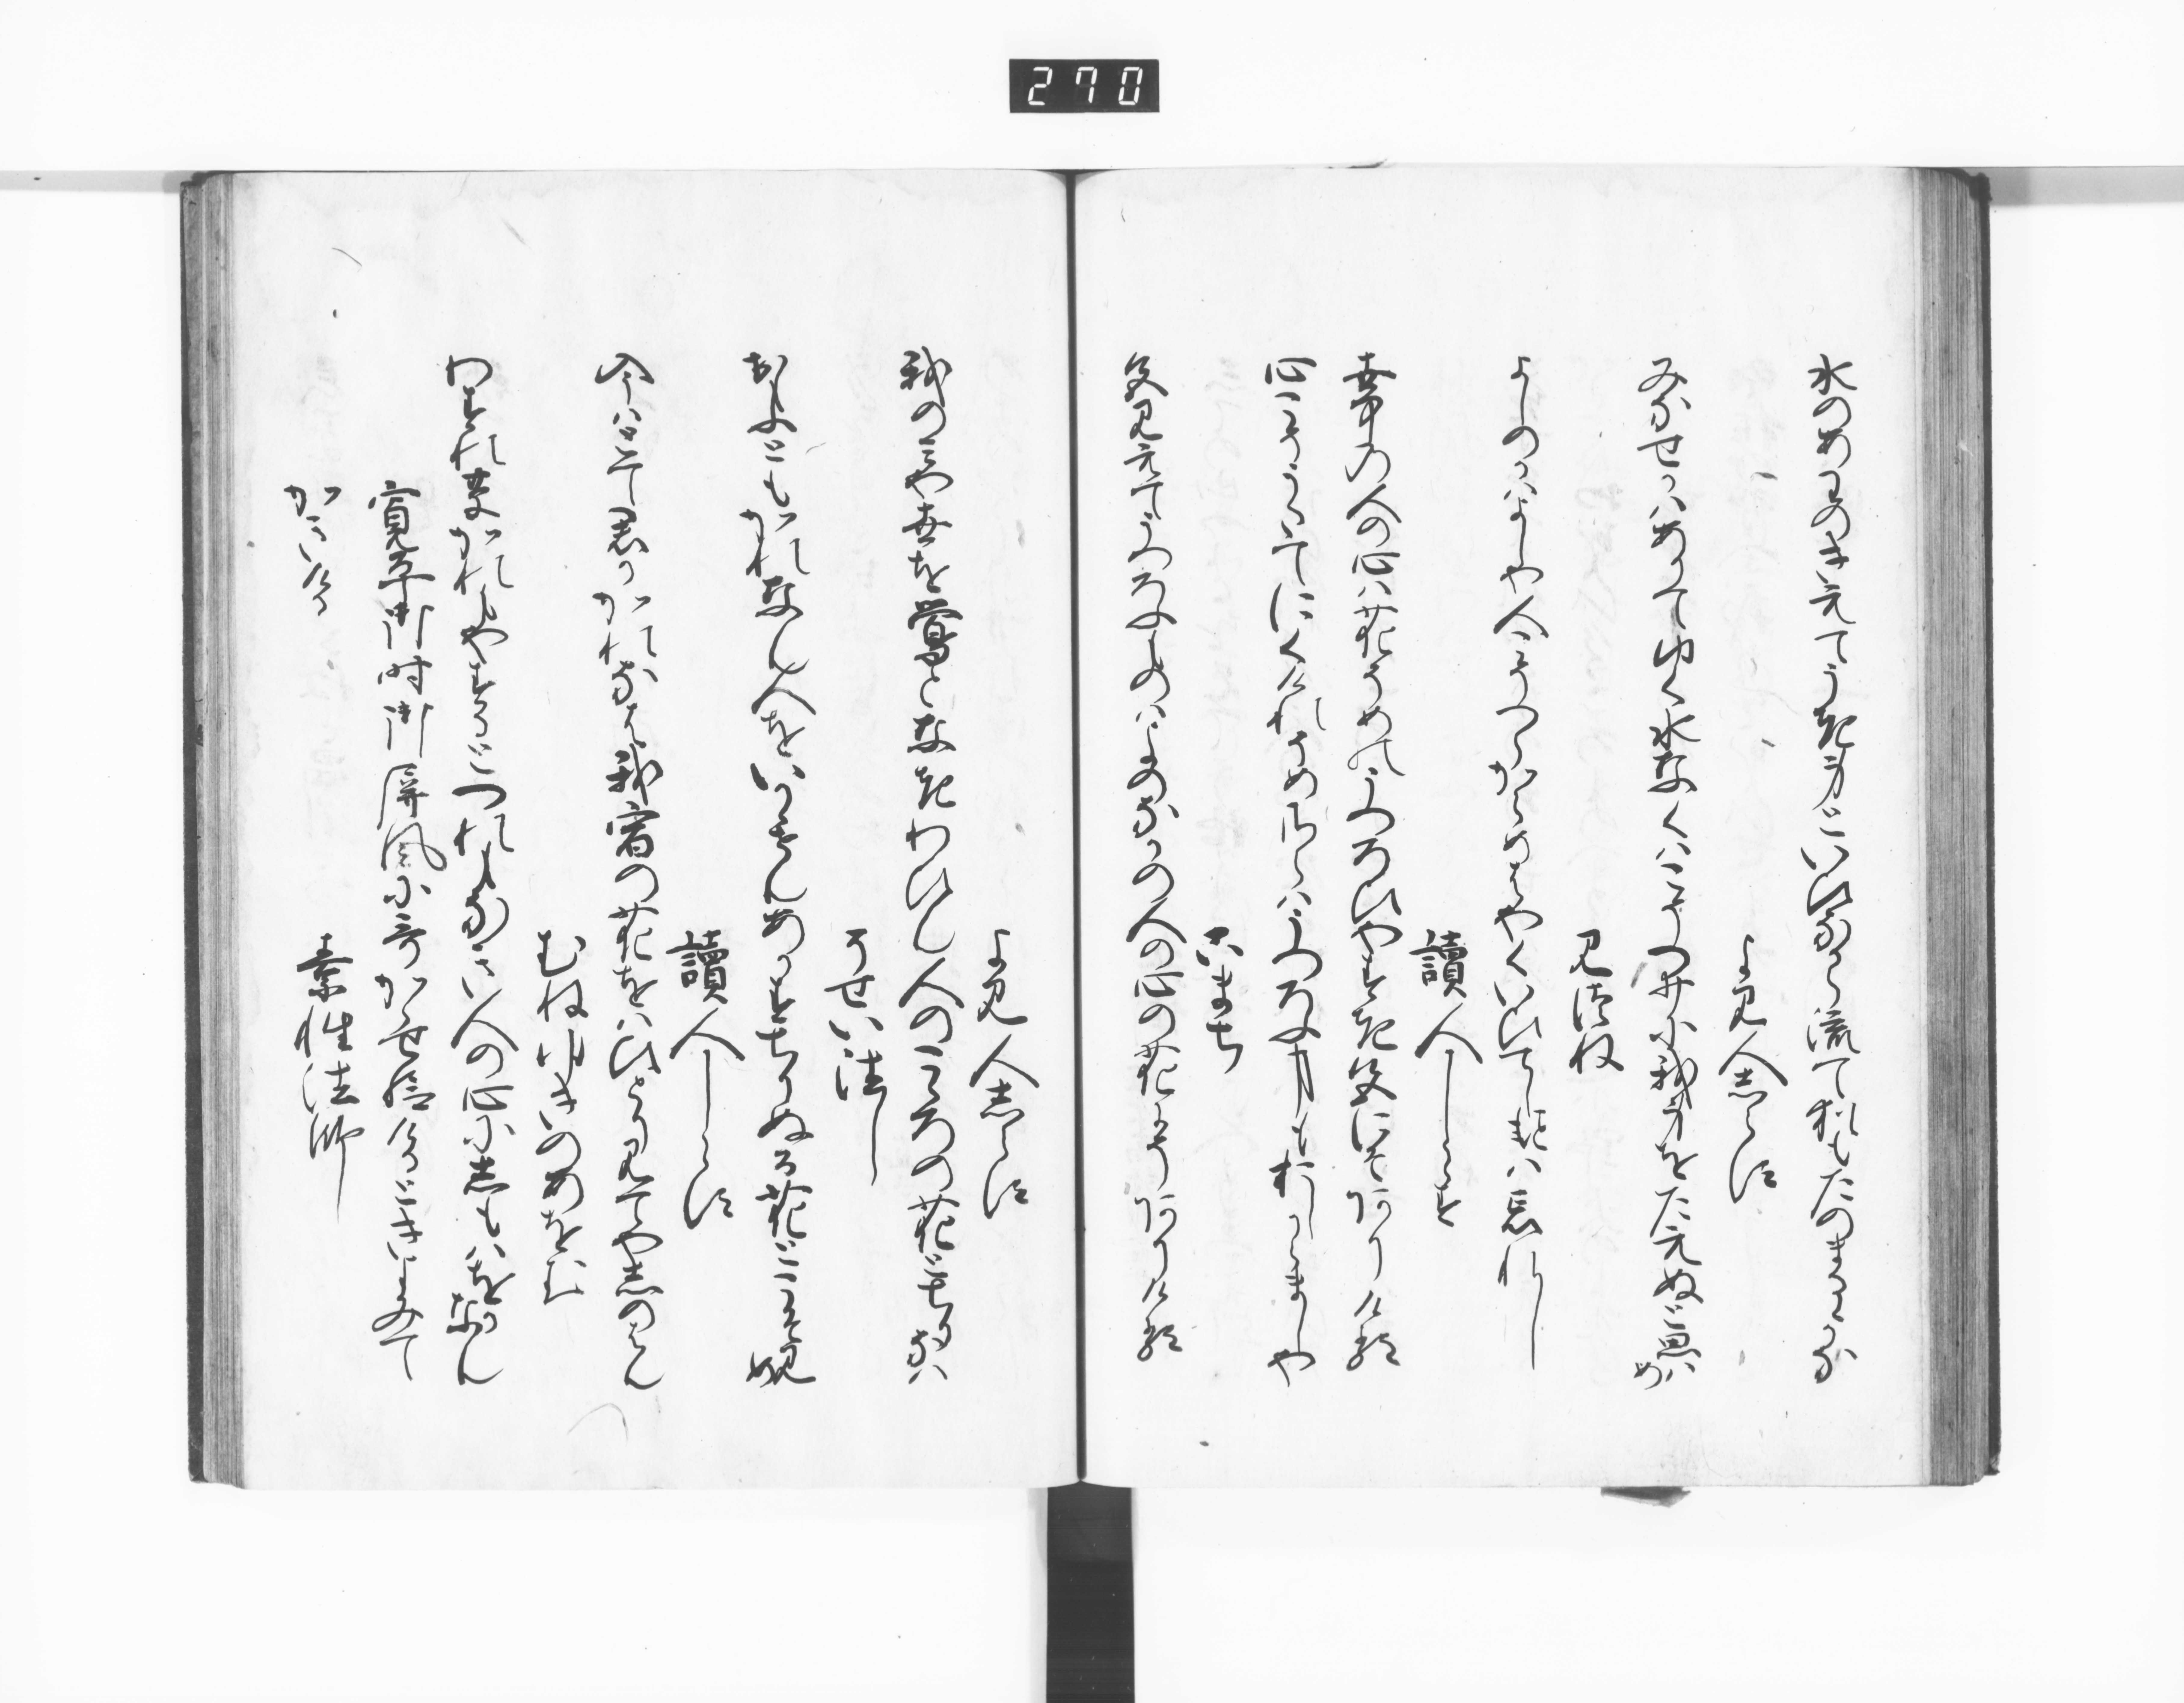 270
水のあわのきえてうき身といひなから流て猶もたのまるゝかな
よみ人志らす
みなせかはありてゆく水なくはこそつゐに我身をたえぬと思はめ
みつね
よしのかはよしや人こそつらからめはやくいひてしことは忘れし
讀人しらす
世中の人の心は花そめのうつろひやすき色にそありける
心こそうたてにくけれそめさらはうつろふ事もおしからましや
こまち
色見えてうつろふものはよのなかの人の心の花にそありける
よみ人志らす
我のみや世を鶯となきわひん人のこゝろの花とちりなは
そせい法し
おもふともかれなん人をいかゝせんあかすちりぬる花とこそ見め
讀人しらす
今はとて君かかれなは我宿の花をはひとり見てや志のはん
むねゆきのあそむ
わすれ草かれもやするとつれもなき人の心に志もはをかなん
寛平御時御屏風に哥かゝせ給けるときよみて
かきける
素性法師